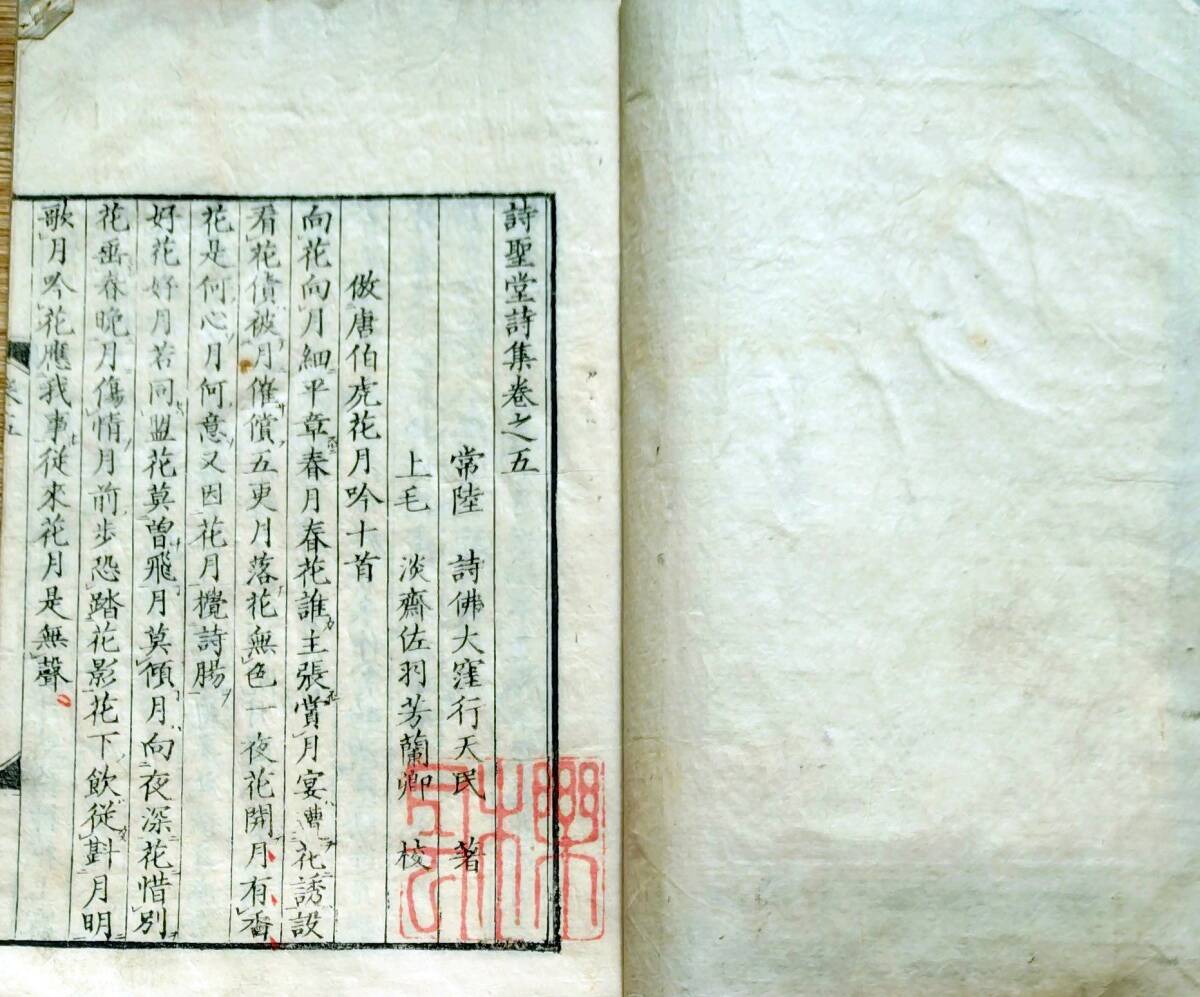 詩聖堂詩集卷之五
常陸　詩佛大窪行天民　著
上毛　淡齋佐羽芳蘭卿　校
倣唐伯虎花月吟十首
向花向月細平章春月春花誰主張賞月宴遭花誘設
看花債被月催償五更月落花無色一夜花開月有香
花是何心月何意又因花月攪詩腸
好花好月若同盟花莫曾飛月莫傾月向夜深花惜別
花垂春晚月傷情月前步恐踏花影花下飲從斟月明
歌月吟花應我事從來花月是無聲